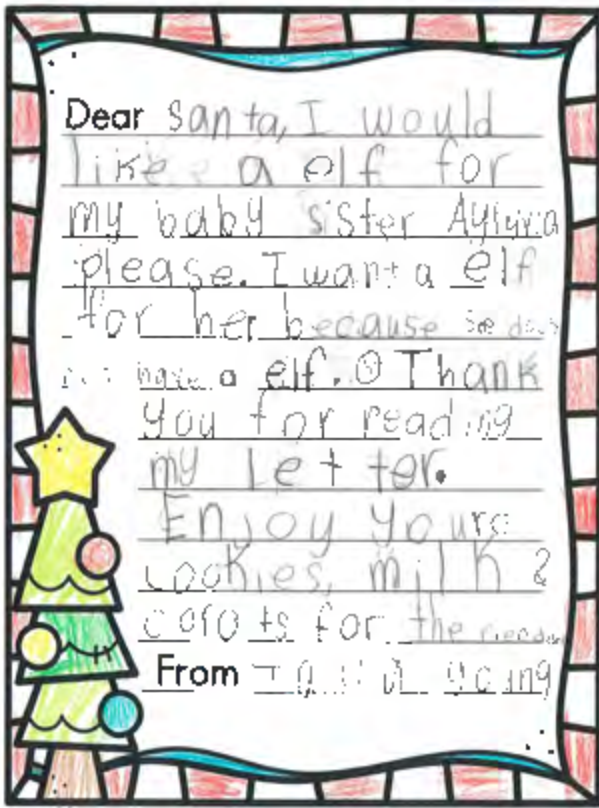 Dear Santa, I would
like a elf for
my baby sister
please. I want a elf
for her because
have a elf. Thank
you for reading
my letter.
Enjoy youre
cookies, milk &
carots for the
From young